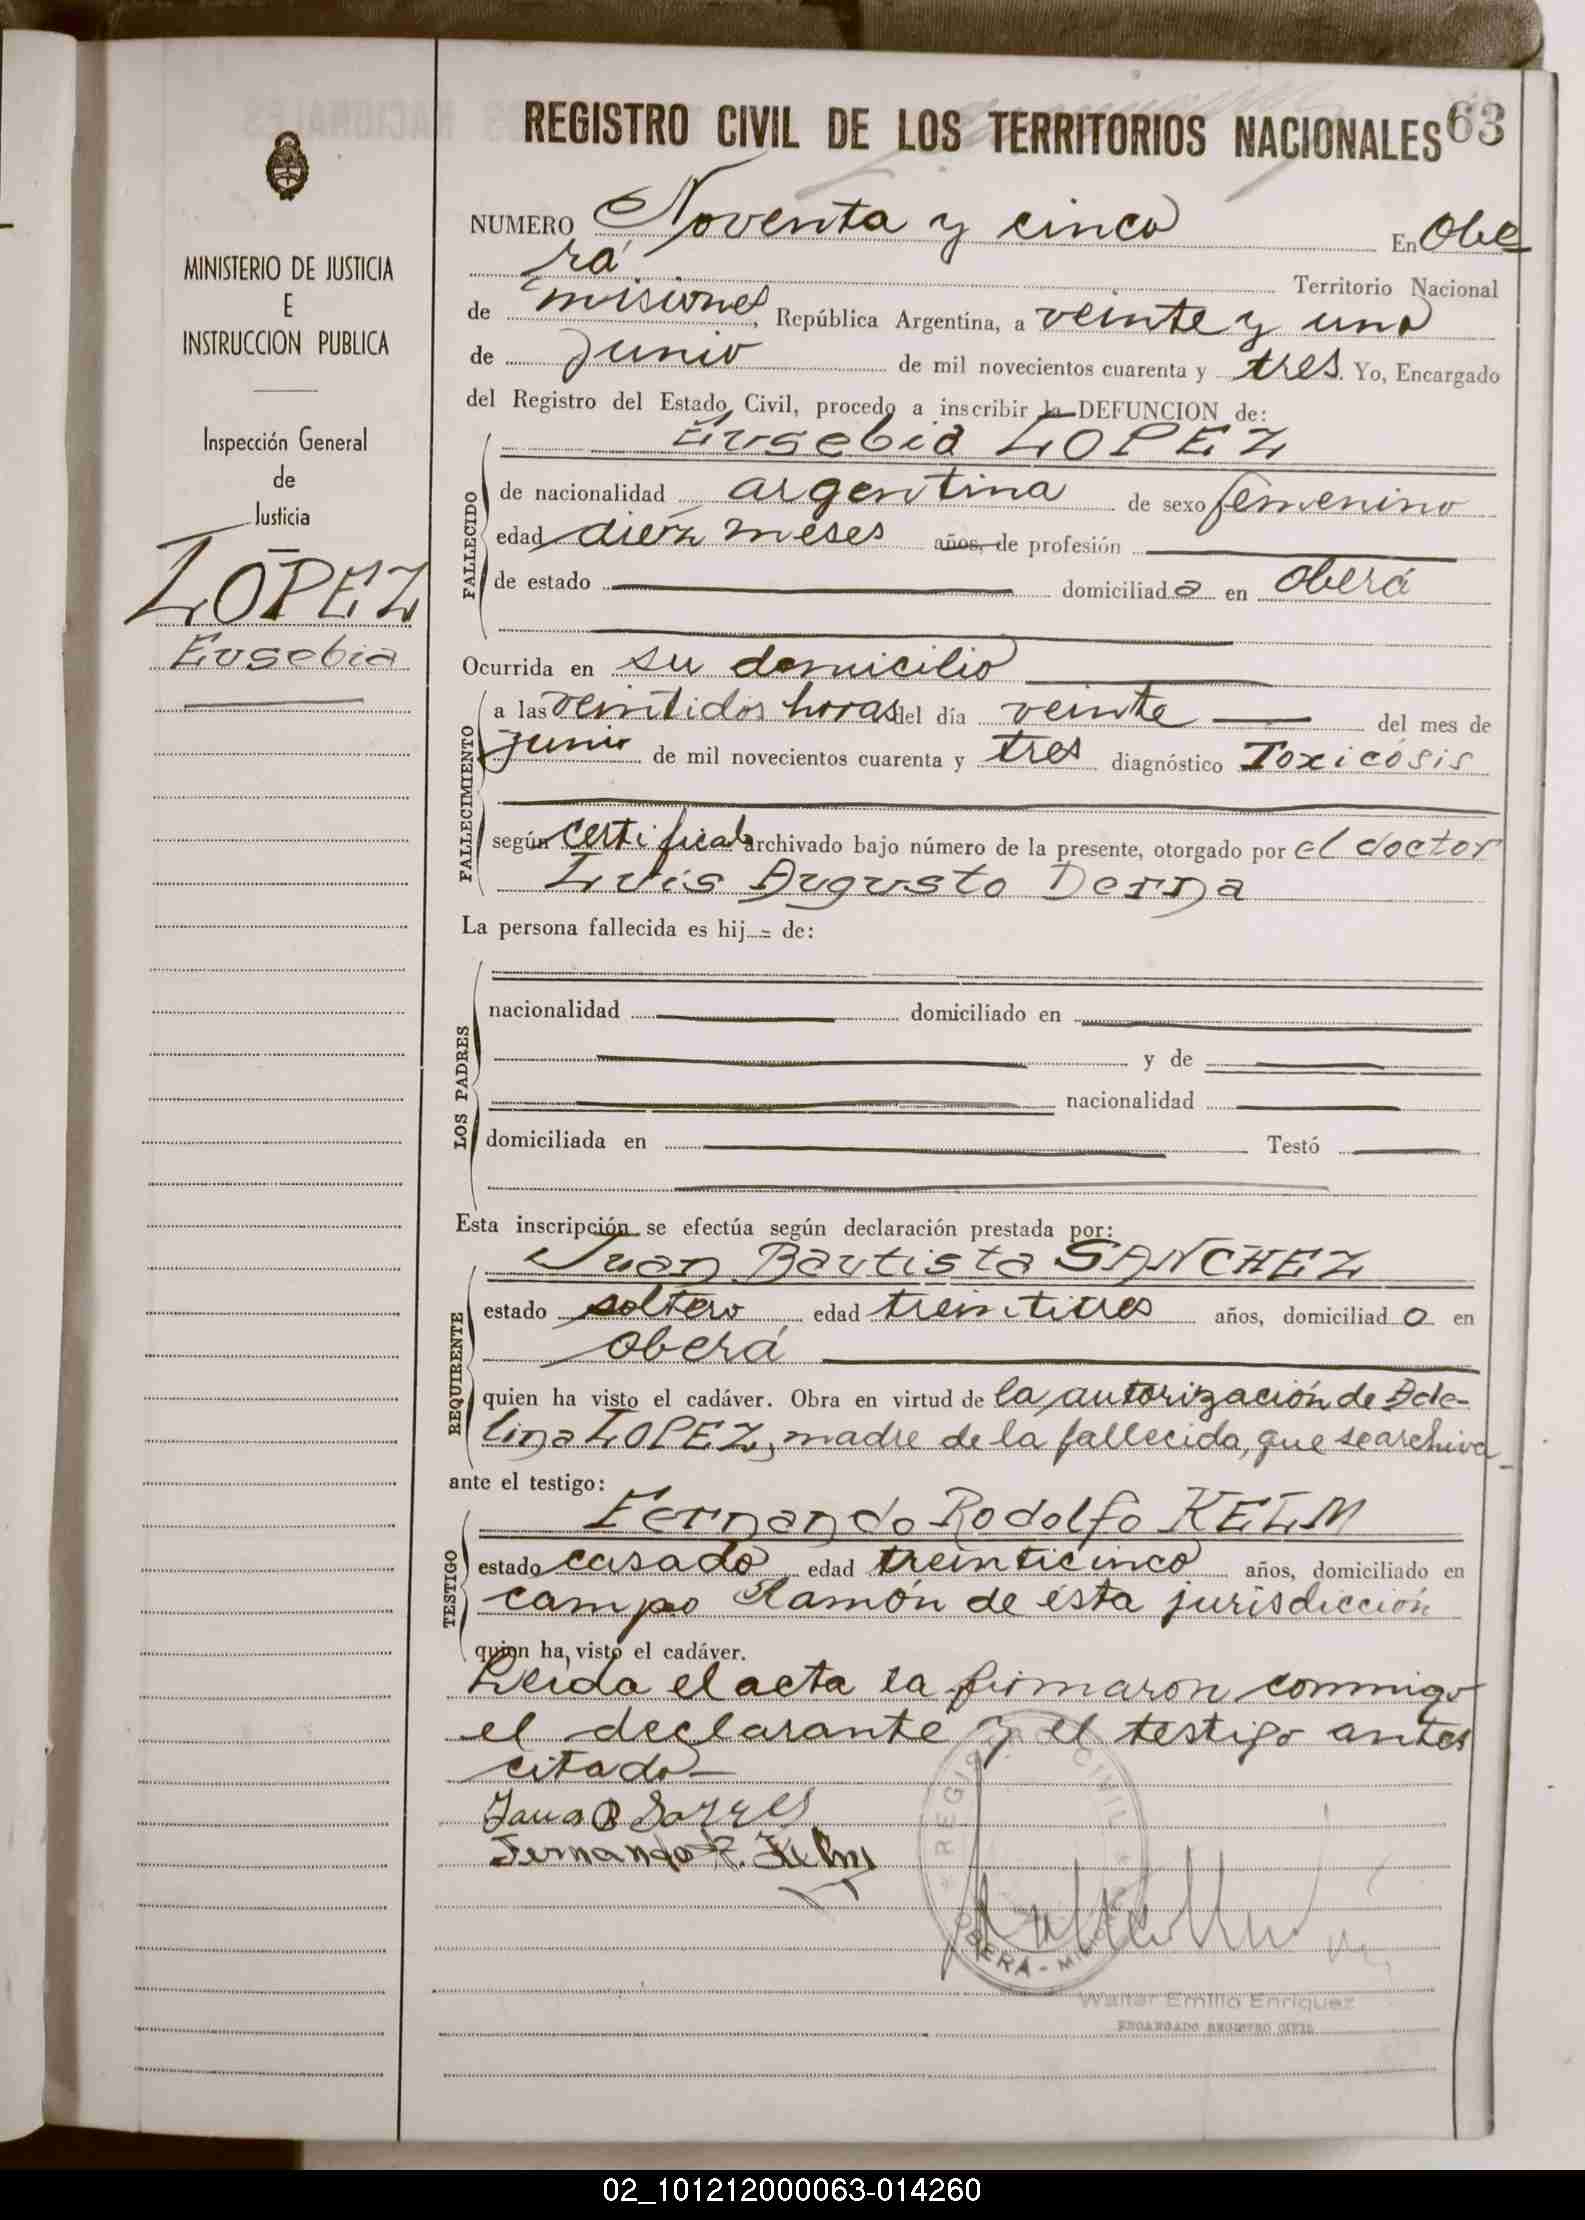 REGISTRO CIVIL DE LOS TERRITORIOS NACIONALES 63
MINISTERIO DE JUSTICIA
E
INSTRUCCION PUBLICA
Inspección General
de
Justicia
LOPEZ
Eusebia
NUMERO Noventa y cinco En Obe-
rá Territorio Nacional
de misiones, República Argentina, a veinte y uno
de junio de mil novecientos cuarenta y tres. Yo, Encargado
del Registro del Estado Civil, procedo a inscribir la DEFUNCION de:
Eusebia LOPEZ
FALLECIDO
de nacionalidad argentina de sexo femenino
edad diez meses años, de profesión
de estado domiciliada en Oberá
Ocurrida en su domicilio
FALLECIMIENTO
a las veintidos horas del día veinte del mes de
junio de mil novecientos cuarenta y tres diagnóstico Toxicósis
según certificado archivado bajo número de la presente, otorgado por el doctor
Luis Augusto Derna
La persona fallecida es hij de:
LOS PADRES
nacionalidad domiciliado en
y de
nacionalidad
domiciliada en Testó
Esta inscripción se efectúa según declaración prestada por:
Juan Bautista SANCHEZ
REQUIRENTE
estado soltero edad treintitres años, domiciliado en
Oberá
quien ha visto el cadáver. Obra en virtud de la autorización de Ade-
lina LOPEZ, madre de la fallecida, que se archiva-
ante el testigo:
Fernando Rodolfo KELM
TESTIGO
estado casado edad treinticinco años, domiciliado en
campo Ramón de ésta jurisdicción
quien ha visto el cadáver.
Leída el acta la firmaron conmigo
el declarante y el testigo antes
citado-
Fernando R. Kelm
REGISTRO CIVIL
OBERÁ - MISIONES
Walter Emilio Enriquez
ENCARGADO REGISTRO CIVIL
02_101212000063-014260